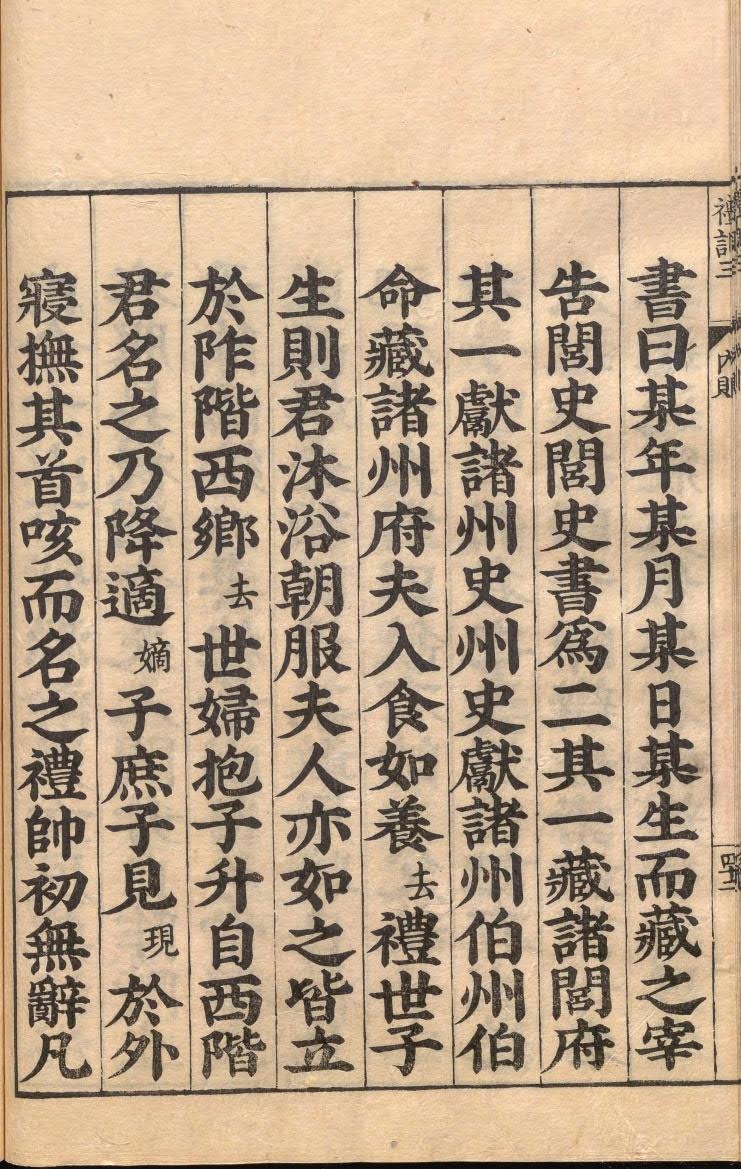 禮記三 內則
書曰某年某月某日某生而藏之宰
告閭史閭史書爲二其一藏諸閭府
其一獻諸州史州史獻諸州伯州伯
命藏諸州府夫入食如養去禮世子
生則君沐浴朝服夫人亦如之皆立
於阼階西鄉去世婦抱子升自西階
君名之乃降適嫡子庶子見現於外
寢撫其首咳而名之禮帥初無辭凡